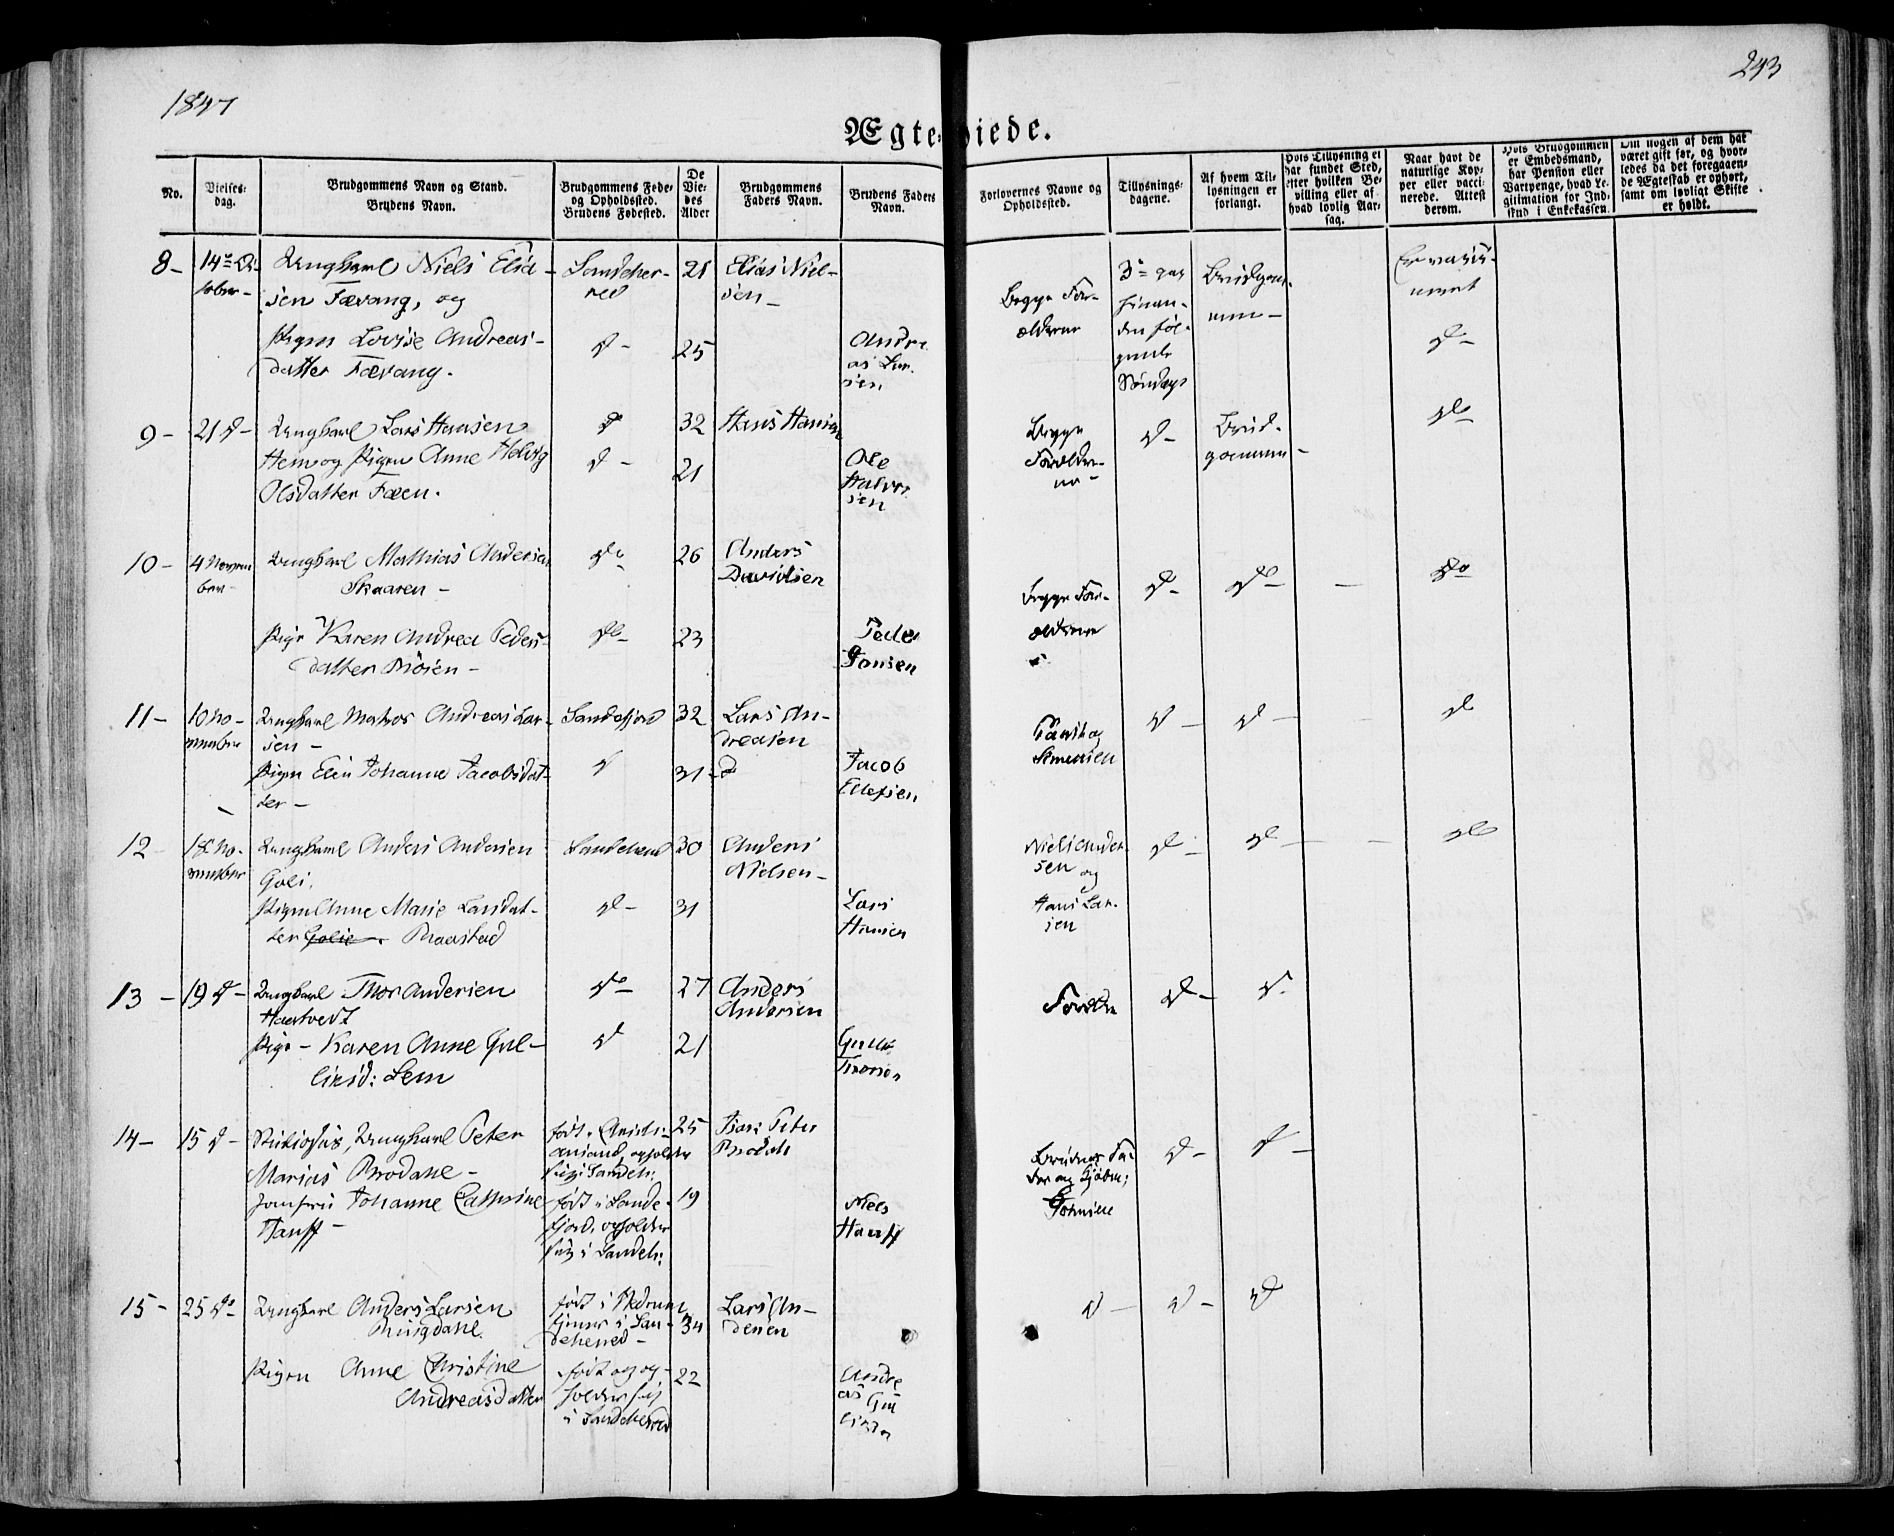 1847
243
Ægteviede.
No.
Vielses-
dag.
Brudgommens Navn og Stand.
Brudens Navn.
Brudgommens Føde-
og Opholdssted.
Brudens Fødested.
De
Vie-
des
Alder
Brudgommens
Faders Navn.
Brudens Faders
Navn.
Forlovernes Navne og
Opholdssted.
Tillysnings-
dagene.
Af hvem Til-
lysningen er
forlangt.
Hvis Tillysning ei
har fundet Sted,
efter hvilken Be-
villing eller af
hvad lovlig Aar-
sag.
Naar havt de
naturlige Kop-
per eller vacci-
nerede. Attest
derom.
Hvis Brudgommen
er Embedsmand,
har Pension eller
Vartpenge, hvad Le-
gitimation for Ind-
skud i Enkekassen.
Om nogen af dem har
været gift før, og hvor-
ledes da det foregaaen-
de Ægteskab er ophørt,
samt om lovligt Skifte
er holdt.
8 -
14de Oc-
tober -
Ungkarl Niels Elia-
sen Fævang, og
Pigen Lovise Andreas-
datter Fævang.
Sandeher-
red
do -
21
25
Elias Niel-
sen -
Andre
as Lar-
sen
Begge For-
ældrene
3de gang
hinan-
den føl-
gende
Søndage
Brudgom-
men -
Er vacci-
neret
do -
9 -
21 do -
Ungkarl Lars Hansen
Hem og Pigen Anne Helvig
Olsdatter Fæen.
do
do -
32
21
Hans Hansen
Ole
Halvor
sen
Begge
Forældre-
ne -
do -
Brud-
gommen -
do
10 -
4 Novem
ber -
Ungkarl Mathias Andersen
Skaaren -
Pige Karen Andrea Peders-
datter Biøien -
do
do -
26
23
Anders
Davidsen
Peder
Jansen
Begge For-
ældrene
do -
do -
-
do
11 -
10 No-
vember
Ungkarl Matros Andreas Lar-
sen -
Pigen Elen Johanne Jacobsdat-
ter -
Sandefjord
do
32
31
Lars An-
dreasen
Jacob
Ellefsen
Simensen
do -
do -
do
12
18 No-
vember
Ungkarl Anders Andersen
Goli.
Pigen Anne Marie Larsdat-
ter Golie. Raastad
Sandeherred
do -
30
31
Anders
Nielsen -
Lars
Hansen
Niels Ander-
sen og
Hans Lar-
sen
do -
do -
-
do
13 -
19 do -
Ungkarl Thor Andersen
Haastvedt
Pige - Karen Anne Gul-
liksd: Lem
do -
do
27
21
Anders
Andersen
Forældr
do -
do -
14 -
15 do -
Ungkarl Peter
Marius Brodahl -
Jomfru Johanne Cathrine
Hauff -
født i Christi-
ansand, opholder
sig i Sandeh:
født i Sande-
fjord, opholder
sig i Sandeh:
25
19
Peter
Brodahl
Niels
Hauff
Brudens Fa-
der og
do -
do -
15 -
25 do -
Ungkarl Anders Larsen
Ringdahl.
Pigen Anne Christine
Andreasdatter
født i Hedrum
tjener i San-
deherred -
født og op-
holder sig
i Sandeherred
34
22
Lars An-
dersen
Andre
as Gul
liksen
do -
do -
do